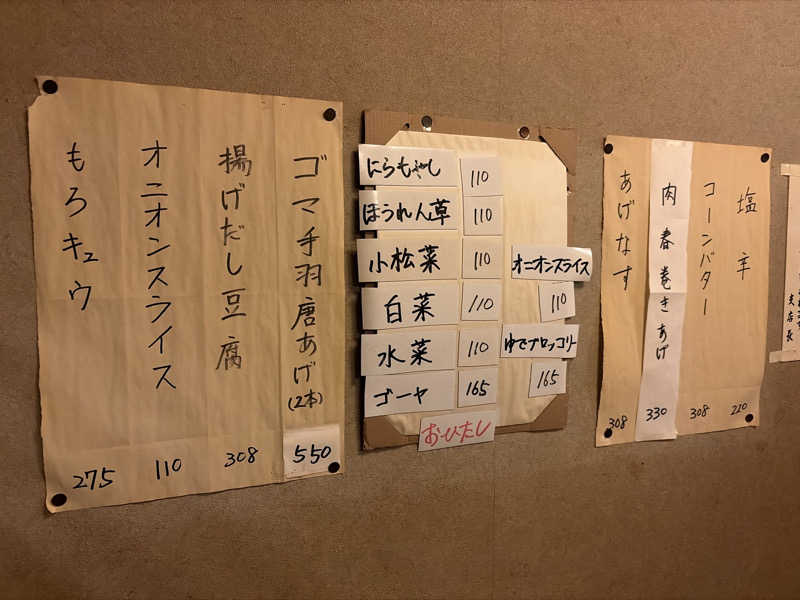 ゴマ手羽唐あげ(2本) 550
揚げだし豆腐 308
オニオンスライス 110
もろキュウ 275
にらもやし 110
ほうれん草 110
小松菜 110
白菜 110
水菜 110
ゴーヤ 165
オニオンスライス
110
ゆでブロッコリー
165
おひたし
塩辛 220
コーンバター 308
肉春巻きあげ 330
あげなす 308
支店長